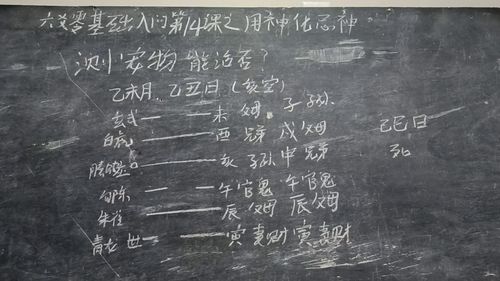 六爻零基础入门第14课之用神化忌神
测小宠物能活否?
乙未月、乙丑日(亥空)
玄武 — — 未 父母 子 子孙
白虎 —— 酉 兄弟 戌 父母
螣蛇 —— 亥 子孙 申 兄弟
勾陈 — — 午 官鬼 午官鬼
朱雀 —— 辰 父母 辰 父母
青龙 世 — — 寅 妻财 寅 妻财
乙巳日
死